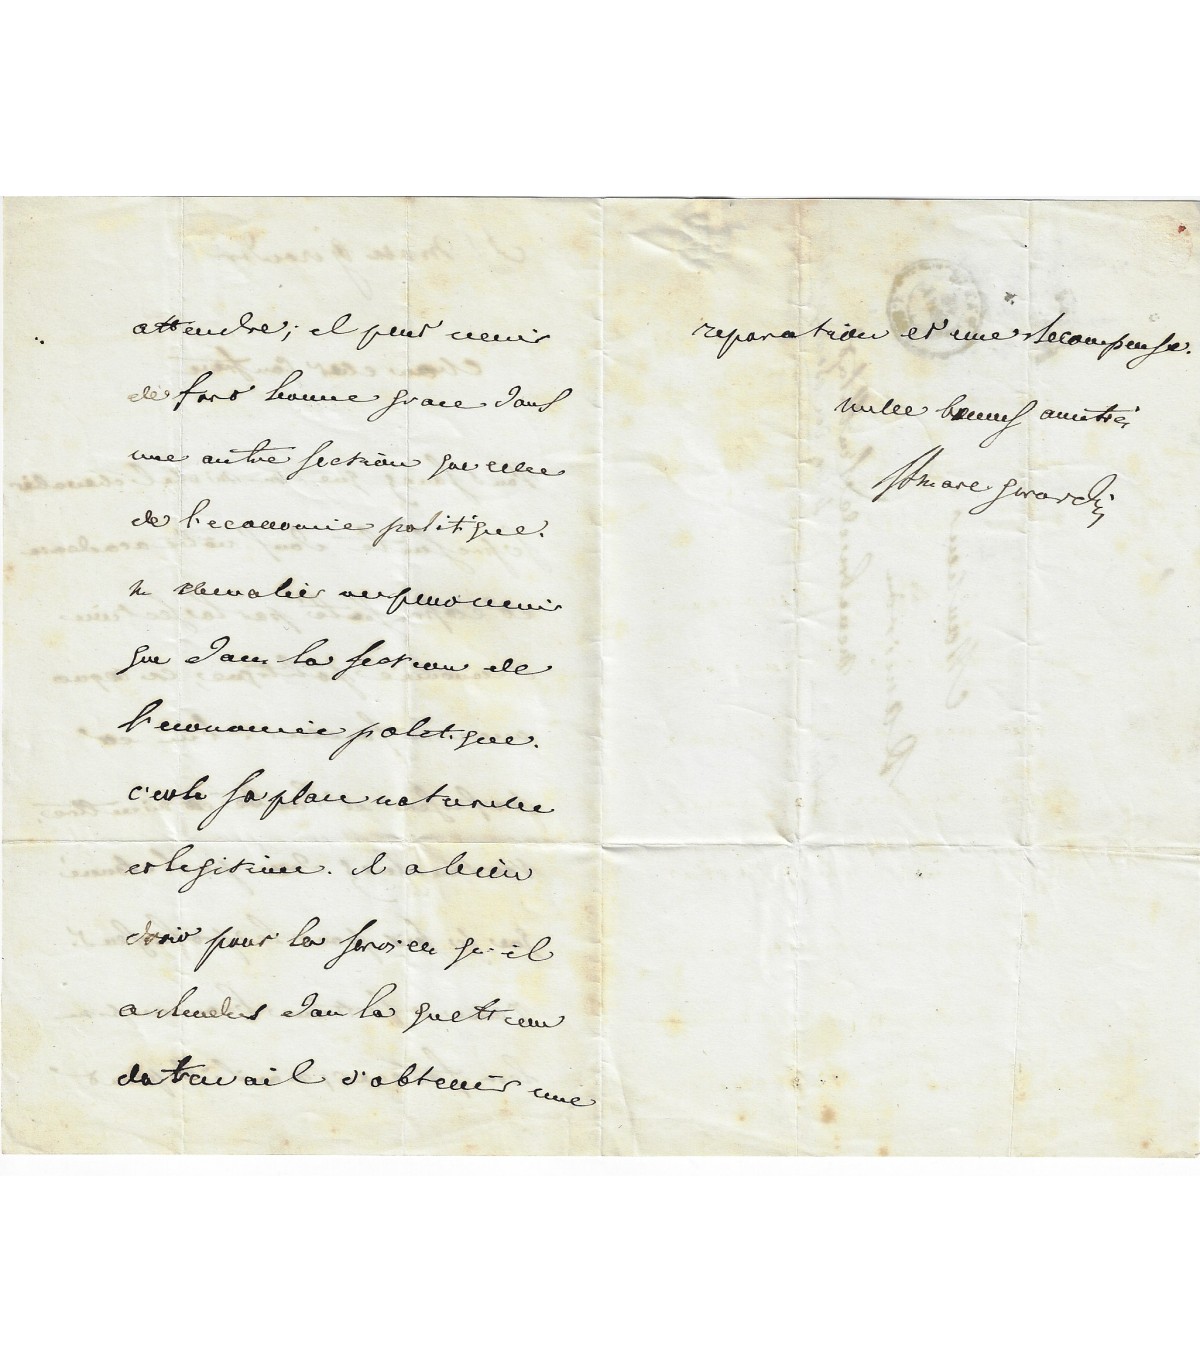 attendre; il peut venir
de fort bonne grace dans
une autre section que celle
de l'economie politique.
M chevalier ne peut venir
que dans la section de
l'economie politique.
c'est la sa place naturelle
et legitime. il a bien
droit pour les services qu'il
a rendus dans la question
du travail d'obtenir une
reparation et une recompense.
mille bonnes amitiés
St marc girardin